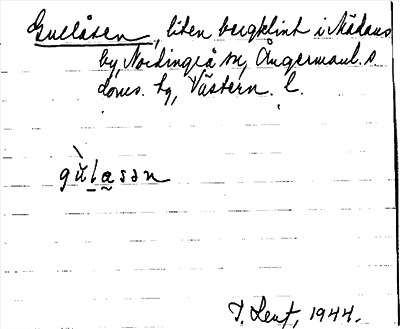 Gullåsen, liten bergklint i Mädans
by, Nordingrå sn, Ångermanl. s
doms. hg, Västern. l.
gùlasən
T. Lent, 1944.